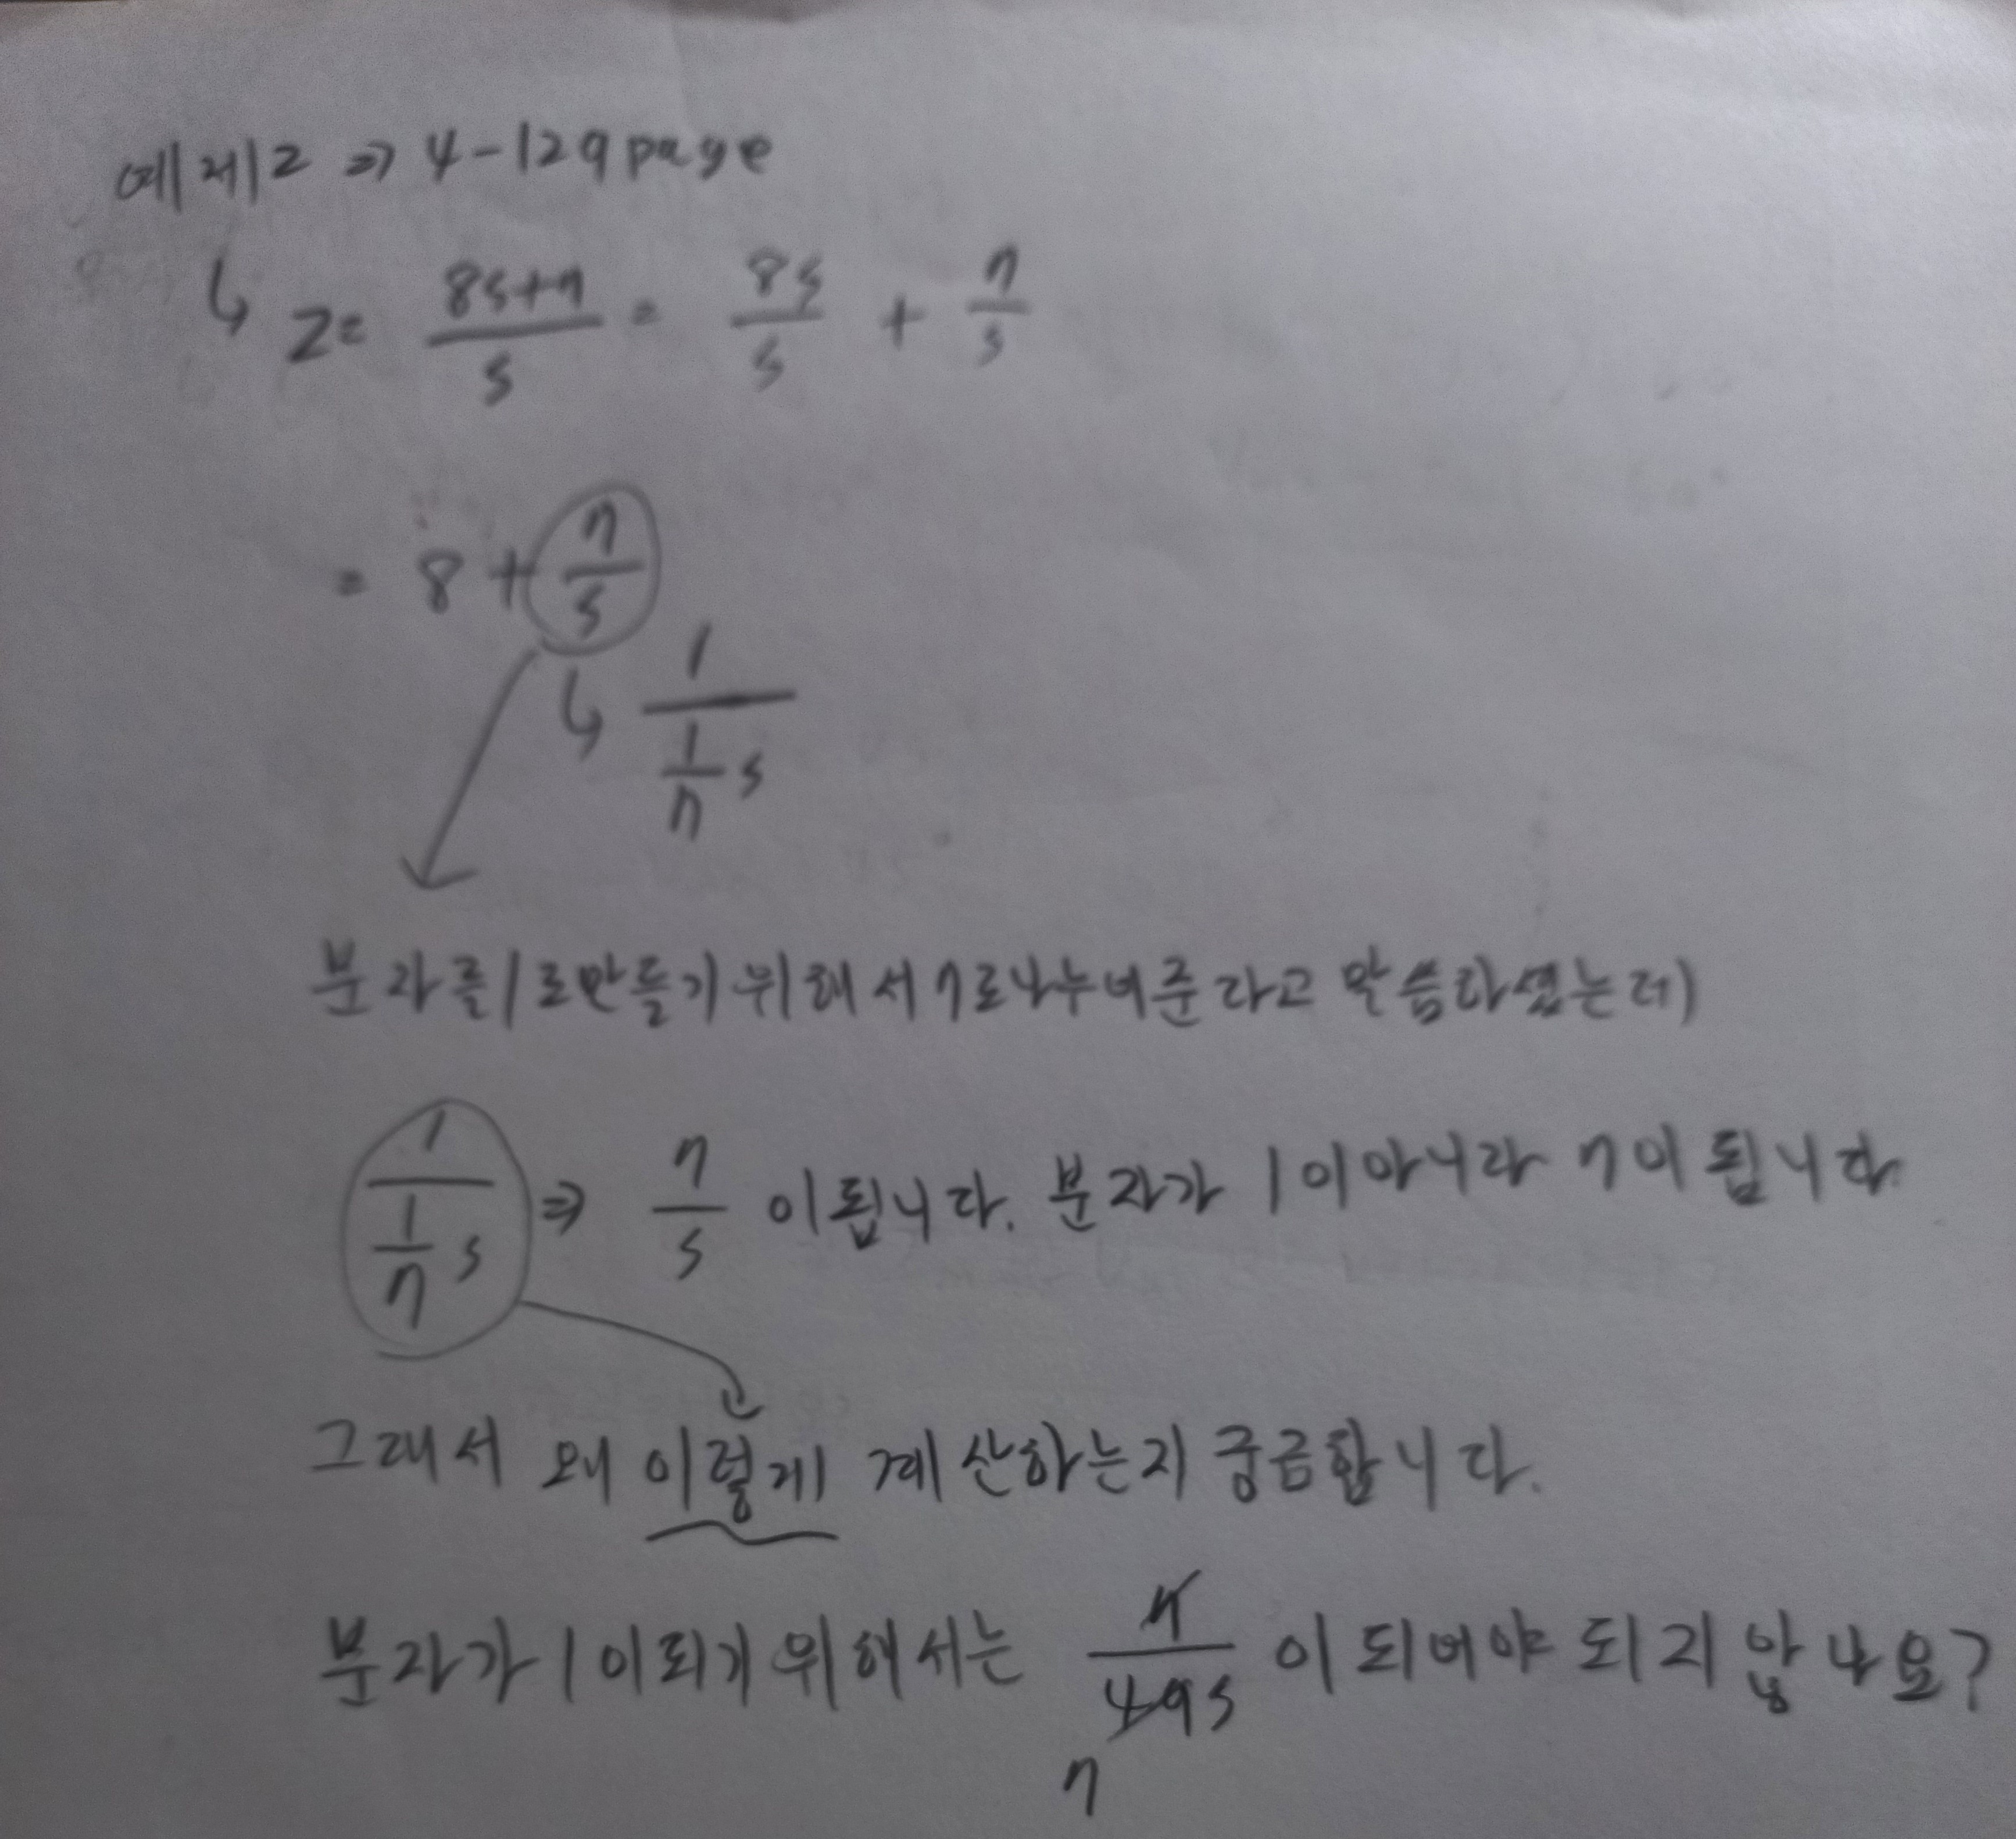 예제2 ⇒ 4-129page
↳ Z = (8s+7)/s = 8s/s + 7/s
= 8 + 7/s
↳ 1/((1/7)s)
분자를 1로 만들기 위해서 7로 나누어준다고 말씀하셨는데
1/((1/7)s) ⇒ 7/s 이 됩니다. 분자가 1이 아니라 7이 됩니다.
그래서 왜 이렇게 계산하는지 궁금합니다.
분자가 1이 되기 위해서는 7/(49s) 이 되어야 되지 않나요?
7